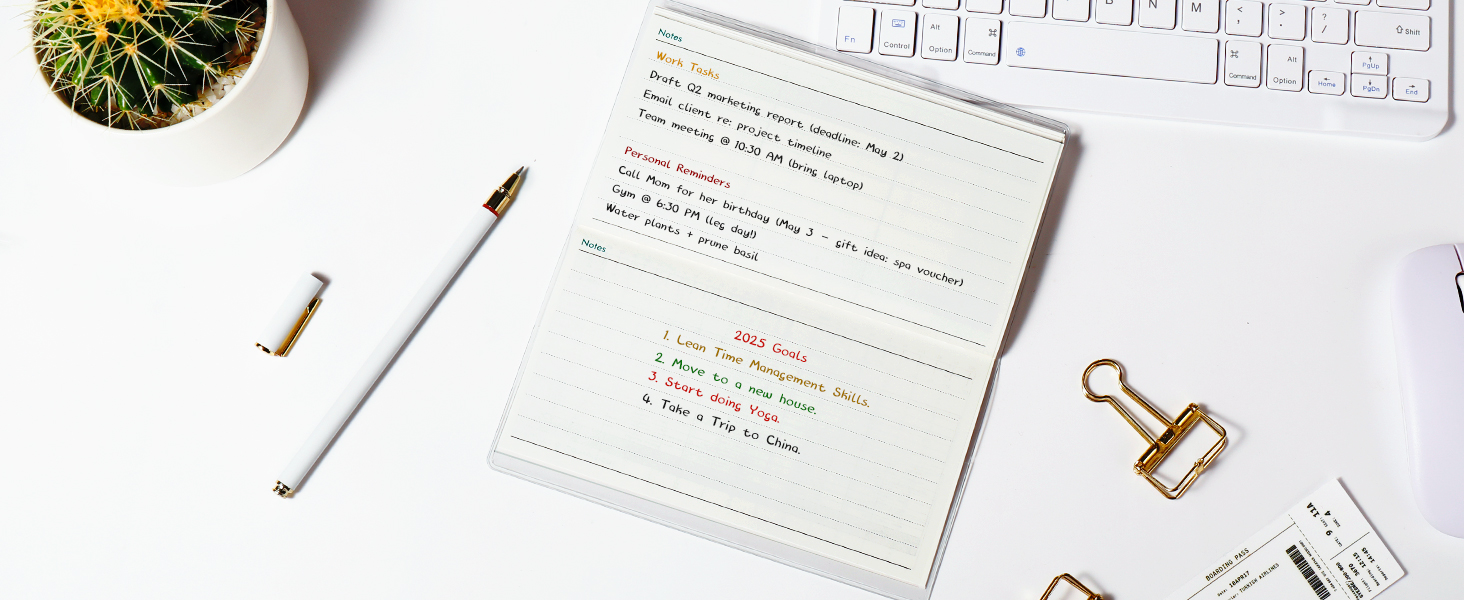 Notes
Work Tasks
Draft Q2 marketing report (deadline: May 2)
Email client re: project timeline
Team meeting @ 10:30 AM (bring laptop)
Personal Reminders
Call Mom for her birthday (May 3 - gift idea: spa voucher)
Gym @ 6:30 PM (leg day!)
Water plants + prune basil
Notes
2025 Goals
1. Lean Time Management Skills.
2. Move to a new house.
3. Start doing Yoga.
4. Take a Trip to China.
B N M < , > . ? / Shift
Fn Control Alt Option Command Command Alt Option Home PgUp PgDn End
BOARDING PASS
18APR17
TURKISH AIRLINES
11A
4
9
12:15
14:45